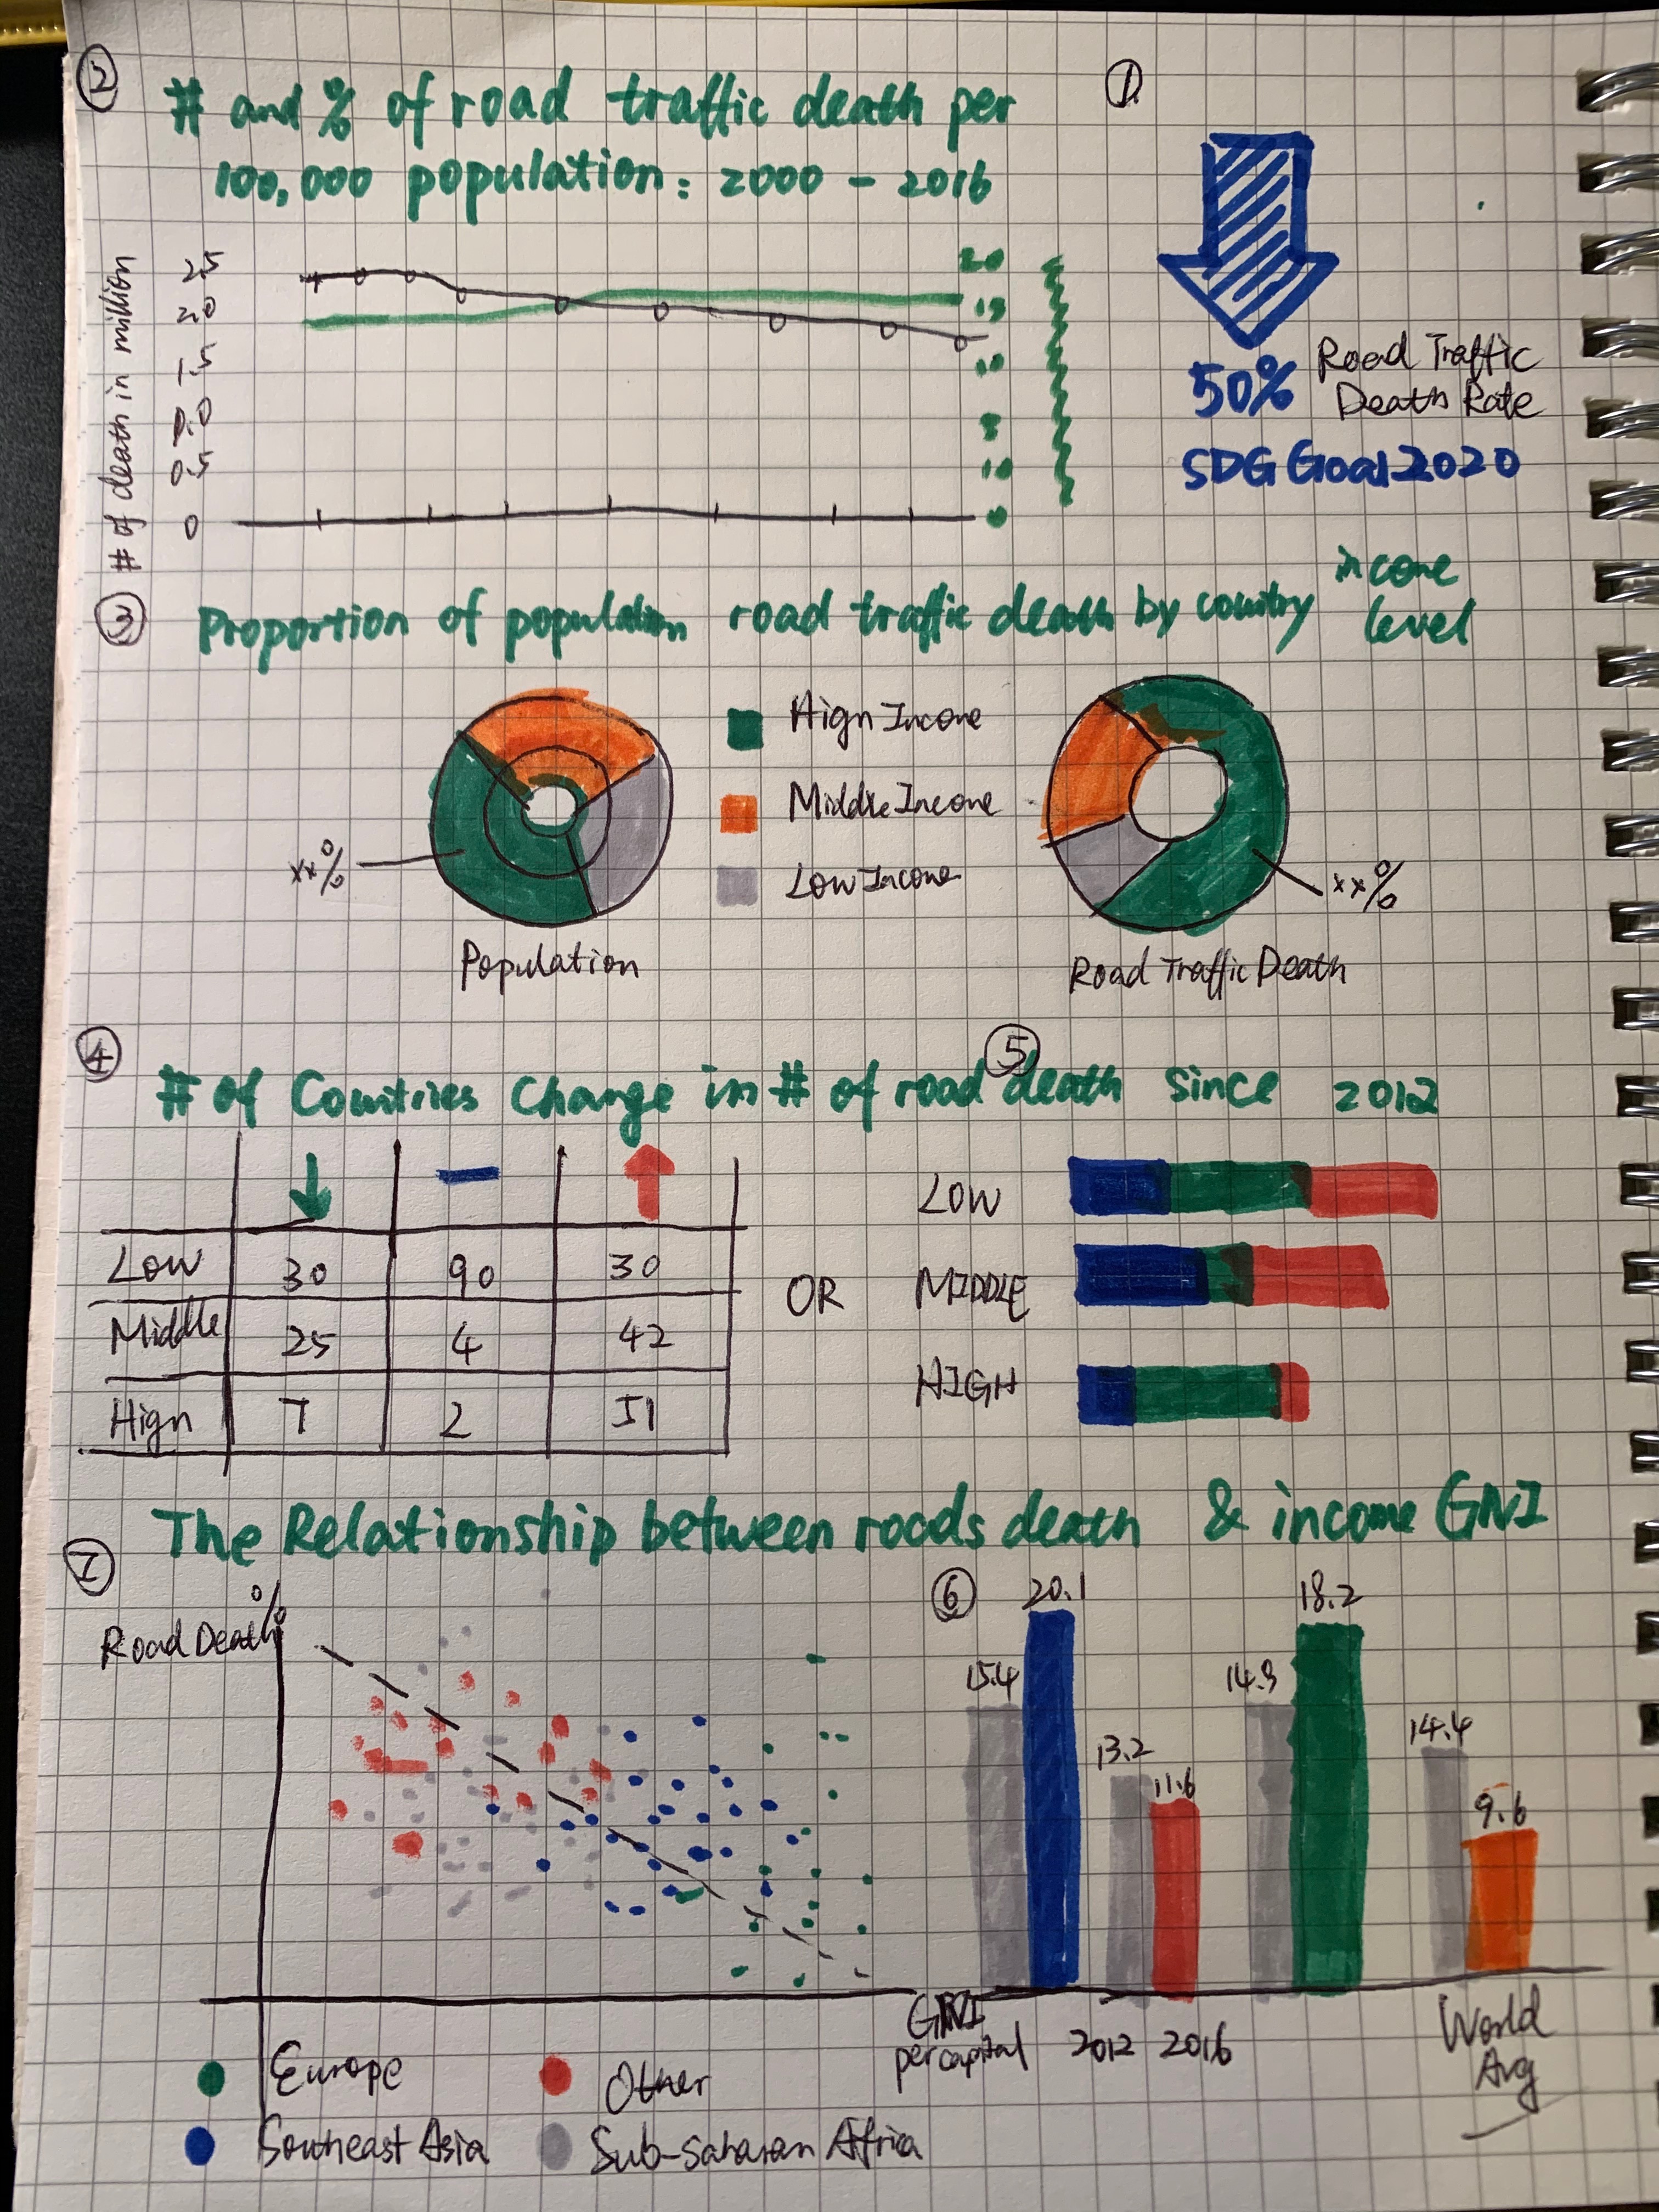 ②
# and % of road traffic death per
100,000 population: 2000 - 2016
# of death in million
2.5
2.0
1.5
0.5
0
20
15
10
10
0
①
50% Road Traffic
Death Rate
SDG Goal 2020
③ Proportion of population road traffic death by country income
level
xx%
Population
Hign Income
Middle Income
Low Income
xx%
Road Traffic Death
④
⑤
# of Countries Change in # of road death since 2012
Low 30 90 30
Middle 25 4 42
Hign 7 2 51
OR
LOW
MIDDLE
HIGH
The Relationship between roads death & income GNI
⑦
Road Death %
GNI
per capital
Europe
Other
Southeast Asia
Sub-saharan Africa
⑥
15.4
20.1
13.2
11.6
14.9
18.2
14.4
9.6
2012 2016
World
Avg